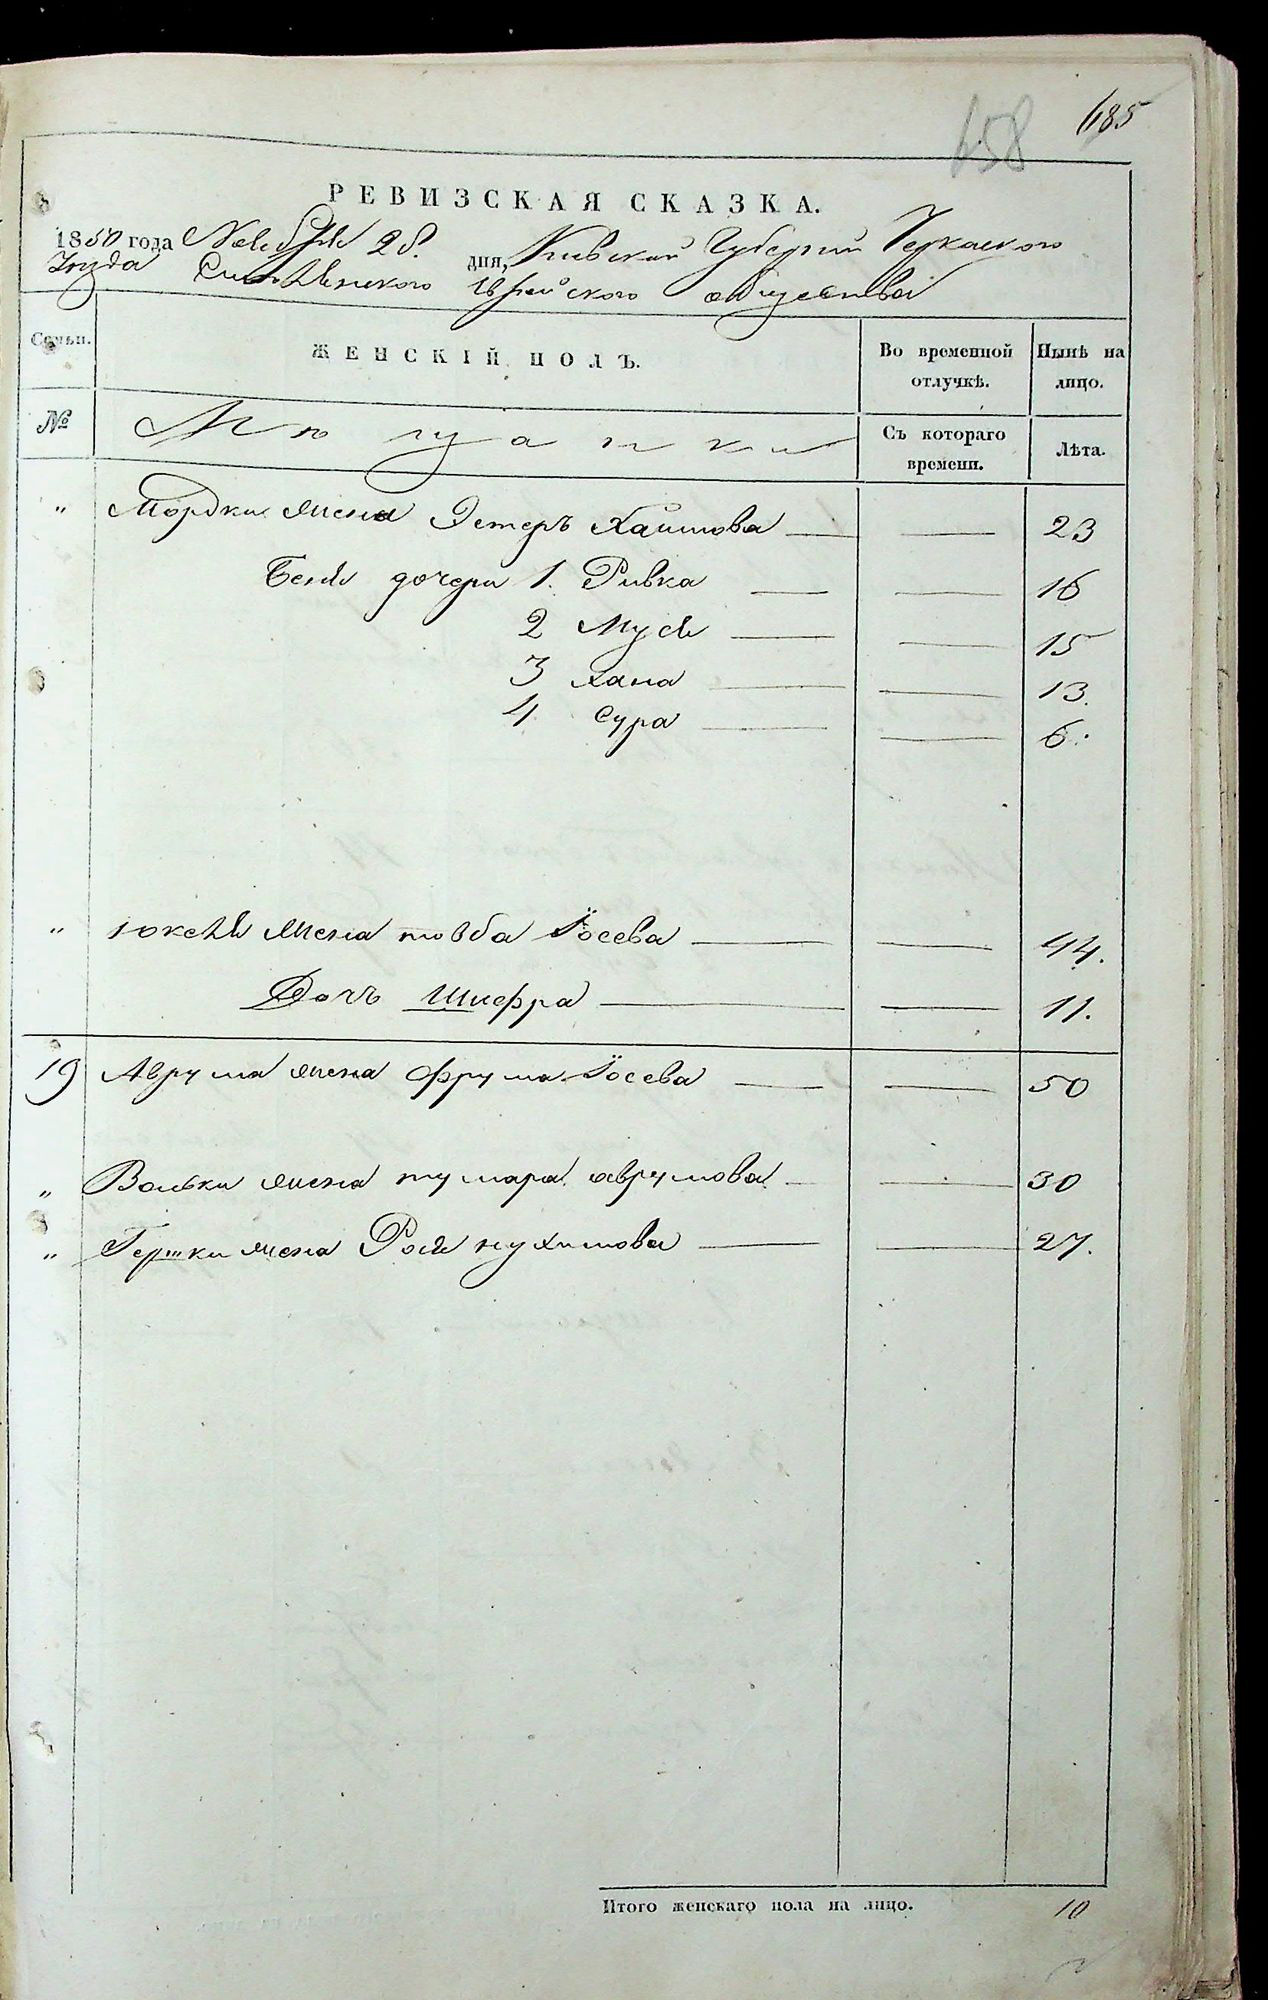 685
658
РЕВИЗСКАЯ СКАЗКА.
1850 года Ноября 28. дня, Киевской Губернии Черкаского
Уезда Смелянского Еврейского общества
Семьи. ЖЕНСКІЙ ПОЛЪ. Во временной отлучкѣ. Нынѣ на лицо.
№ Мещанки Съ котораго времени. Лѣта.
„ Мордки жена Эстеръ Хаимова — — 23
Бени дочери 1. Ривка — — 16
2 Муся — — 15
3 Хана — — 13.
4 Сура — — 6.
„ жена товба Іосева — — 44.
Дочь Шифра — — 11.
19 Аврума жена Фрума Іосева — — 50
„ Вольки жена тумара аврумова — — 30
„ Гершки жена Рося нухимова — — 27.
Итого женскаго пола на лицо. 10